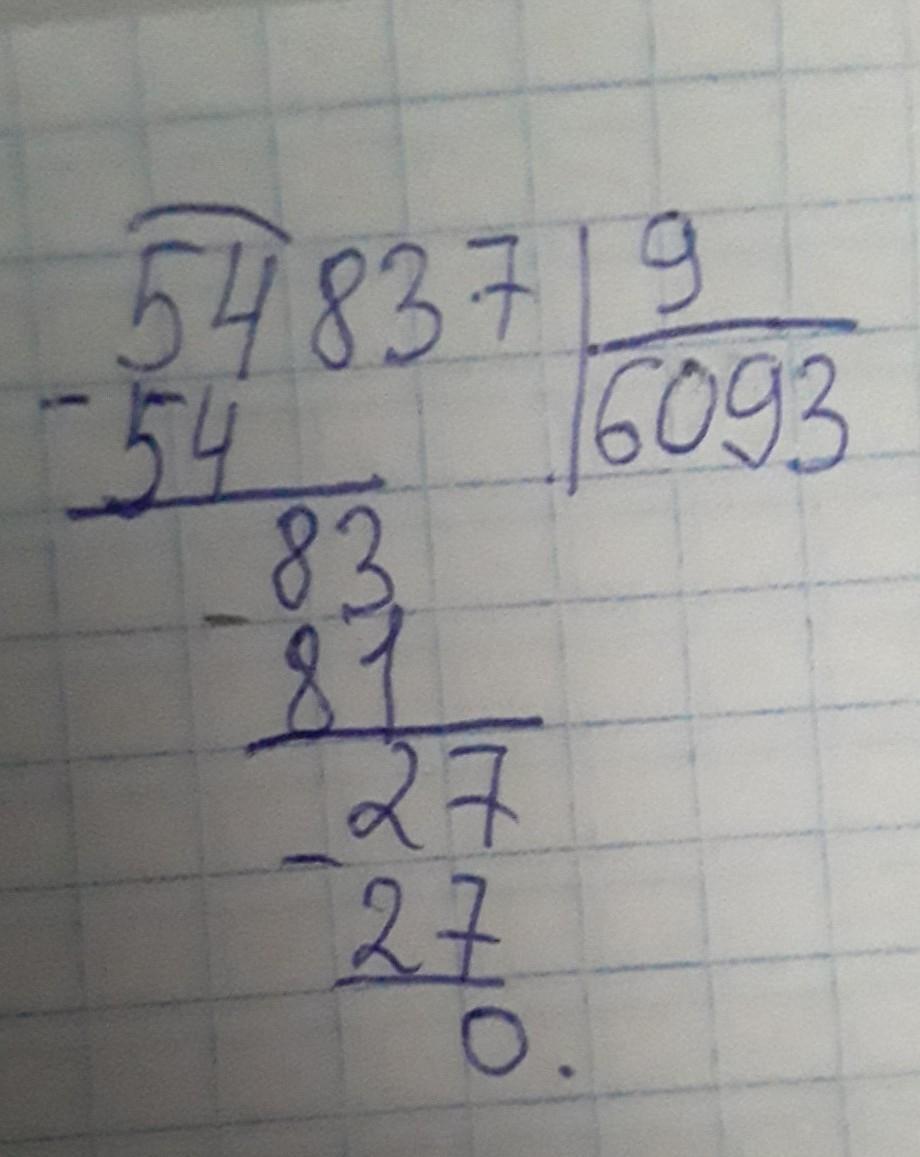 54837 9
- 54 6093
83
- 81
27
- 27
0.